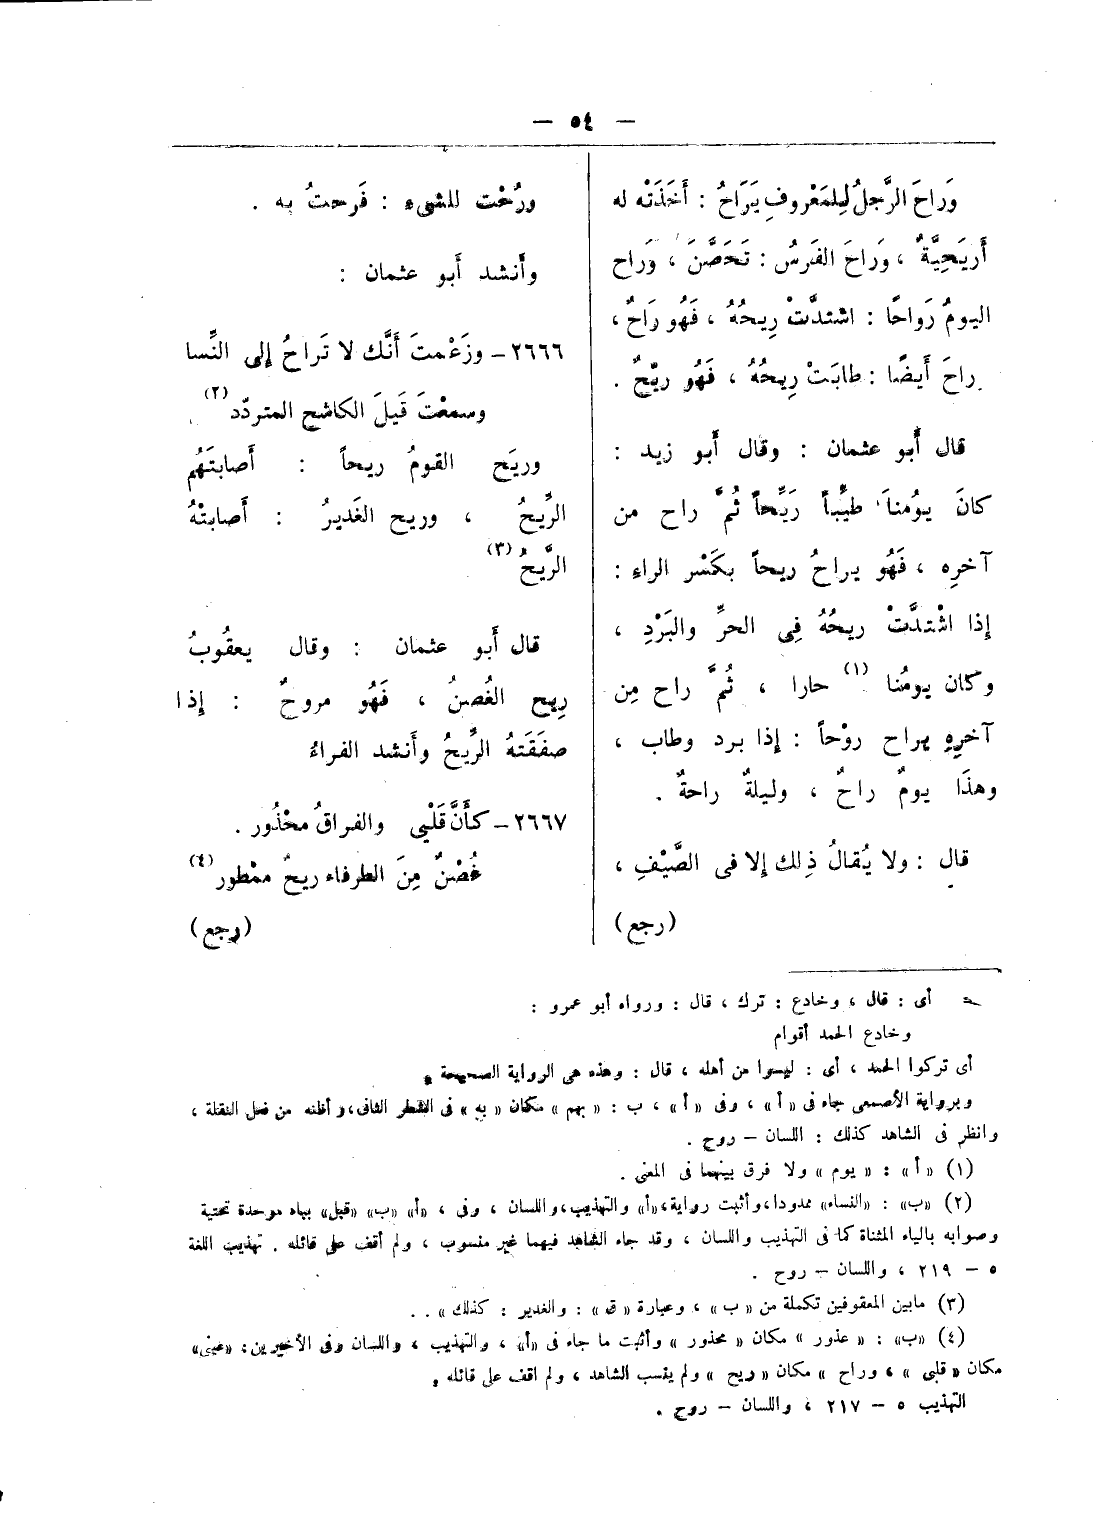 — ٥٤ —
وَراحَ الرَّجلُ لِلمَعْروفِ يَرَاحُ : أَخَذَتْه له
أَريَحِيَّةٌ ، وَراحَ الفَرَسُ : تَحَصَّنَ ، وَراح
اليومُ رَواحًا : اشتدَّتْ رِيحُهُ ، فَهُو رَاحٌ ،
وراحَ أَيضًا : طابَتْ رِيحُهُ ، فَهُو ريِّحٌ .
قال أَبو عثمان : وقال أَبو زيد :
كانَ يوْمُنا طيِّباً رَيِّحاً ثُمَّ راح من
آخرِه ، فَهُو يراحُ ريحاً بكَسْر الراءِ :
إِذا اشْتدَّتْ ريحُهُ فِى الحرِّ والبَرْدِ ،
وكان يومُنا (١) حارا ، ثُمَّ راح مِن
آخرِهِ يراح روْحاً : إِذا برد وطاب ،
وهذَا يومٌ راحٌ ، وليلةٌ راحةٌ .
قال : ولا يُقالُ ذِلك إِلا فى الصَّيْفِ ،
(رجع)
ورُحْت للشىءِ : فَرحتُ بِه .
وأَنشد أَبو عثمان :
٢٦٦٦ – وزَعْمتَ أَنَّك لا تَراحُ إِلى النِّسا
وسمعْتَ قَيلَ الكاشحِ المتردّد (٢)
وريَح القومُ ريحاً : أَصابتَهُم
الرِّيحُ ، وريح الغَديرُ : أَصابتْهُ
الرِّيحُ (٣)
قال أَبو عثمان : وقال يعقُوبُ
رِيح الغُصنُ ، فَهُو مروحٌ : إِذا
صفَقَتهُ الرِّيحُ وأَنشد الفراءُ
٢٦٦٧ – كأَنَّ قَلْبِى والفراقُ محْذُور .
غُصْنٌ مِنَ الطرفاءِ ريحٌ ممْطور (٤)
(رجع)
= أى : قال ، وخادع : ترك ، قال : ورواه أبو عمرو :
وخادع الحمد أقوام
أى تركوا الحمد ، أى : ليسوا من أهله ، قال : وهذه هى الرواية الصحيحة .
وبرواية الأصمعى جاء فى « أ » ، وفى « أ » ، ب : « بهم » مكان « به » فى الشطر الثانى ، وأظنه من فعل النقلة ،
وانظر فى الشاهد كذلك : اللسان – روح .
(١) « أ » : « يوم » ولا فرق بينهما فى المعنى .
(٢) «ب» : «النساء» ممدودا ، وأثبت رواية ، «أ» والتهذيب ، واللسان ، وفى ، «أ» «ب» «قبل» بباء موحدة تحتية
وصوابه بالياء المثناة كما فى التهذيب واللسان ، وقد جاء الشاهد فيهما غير منسوب ، ولم أقف على قائله . تهذيب اللغة
٥ – ٢١٩ ، واللسان – روح .
(٣) مابين المعقوفين تكملة من « ب » ، وعبارة « ق » : والغدير : كذلك » . .
(٤) «ب» : « عذور » مكان « محذور » وأثبت ما جاء فى «أ» ، والتهذيب ، واللسان وفى الأخيرين : «عينى»
مكان « قلبى » ، وراح » مكان « ريح » ولم ينسب الشاهد ، ولم اقف على قائله .
التهذيب ٥ – ٢١٧ ، واللسان – روح .